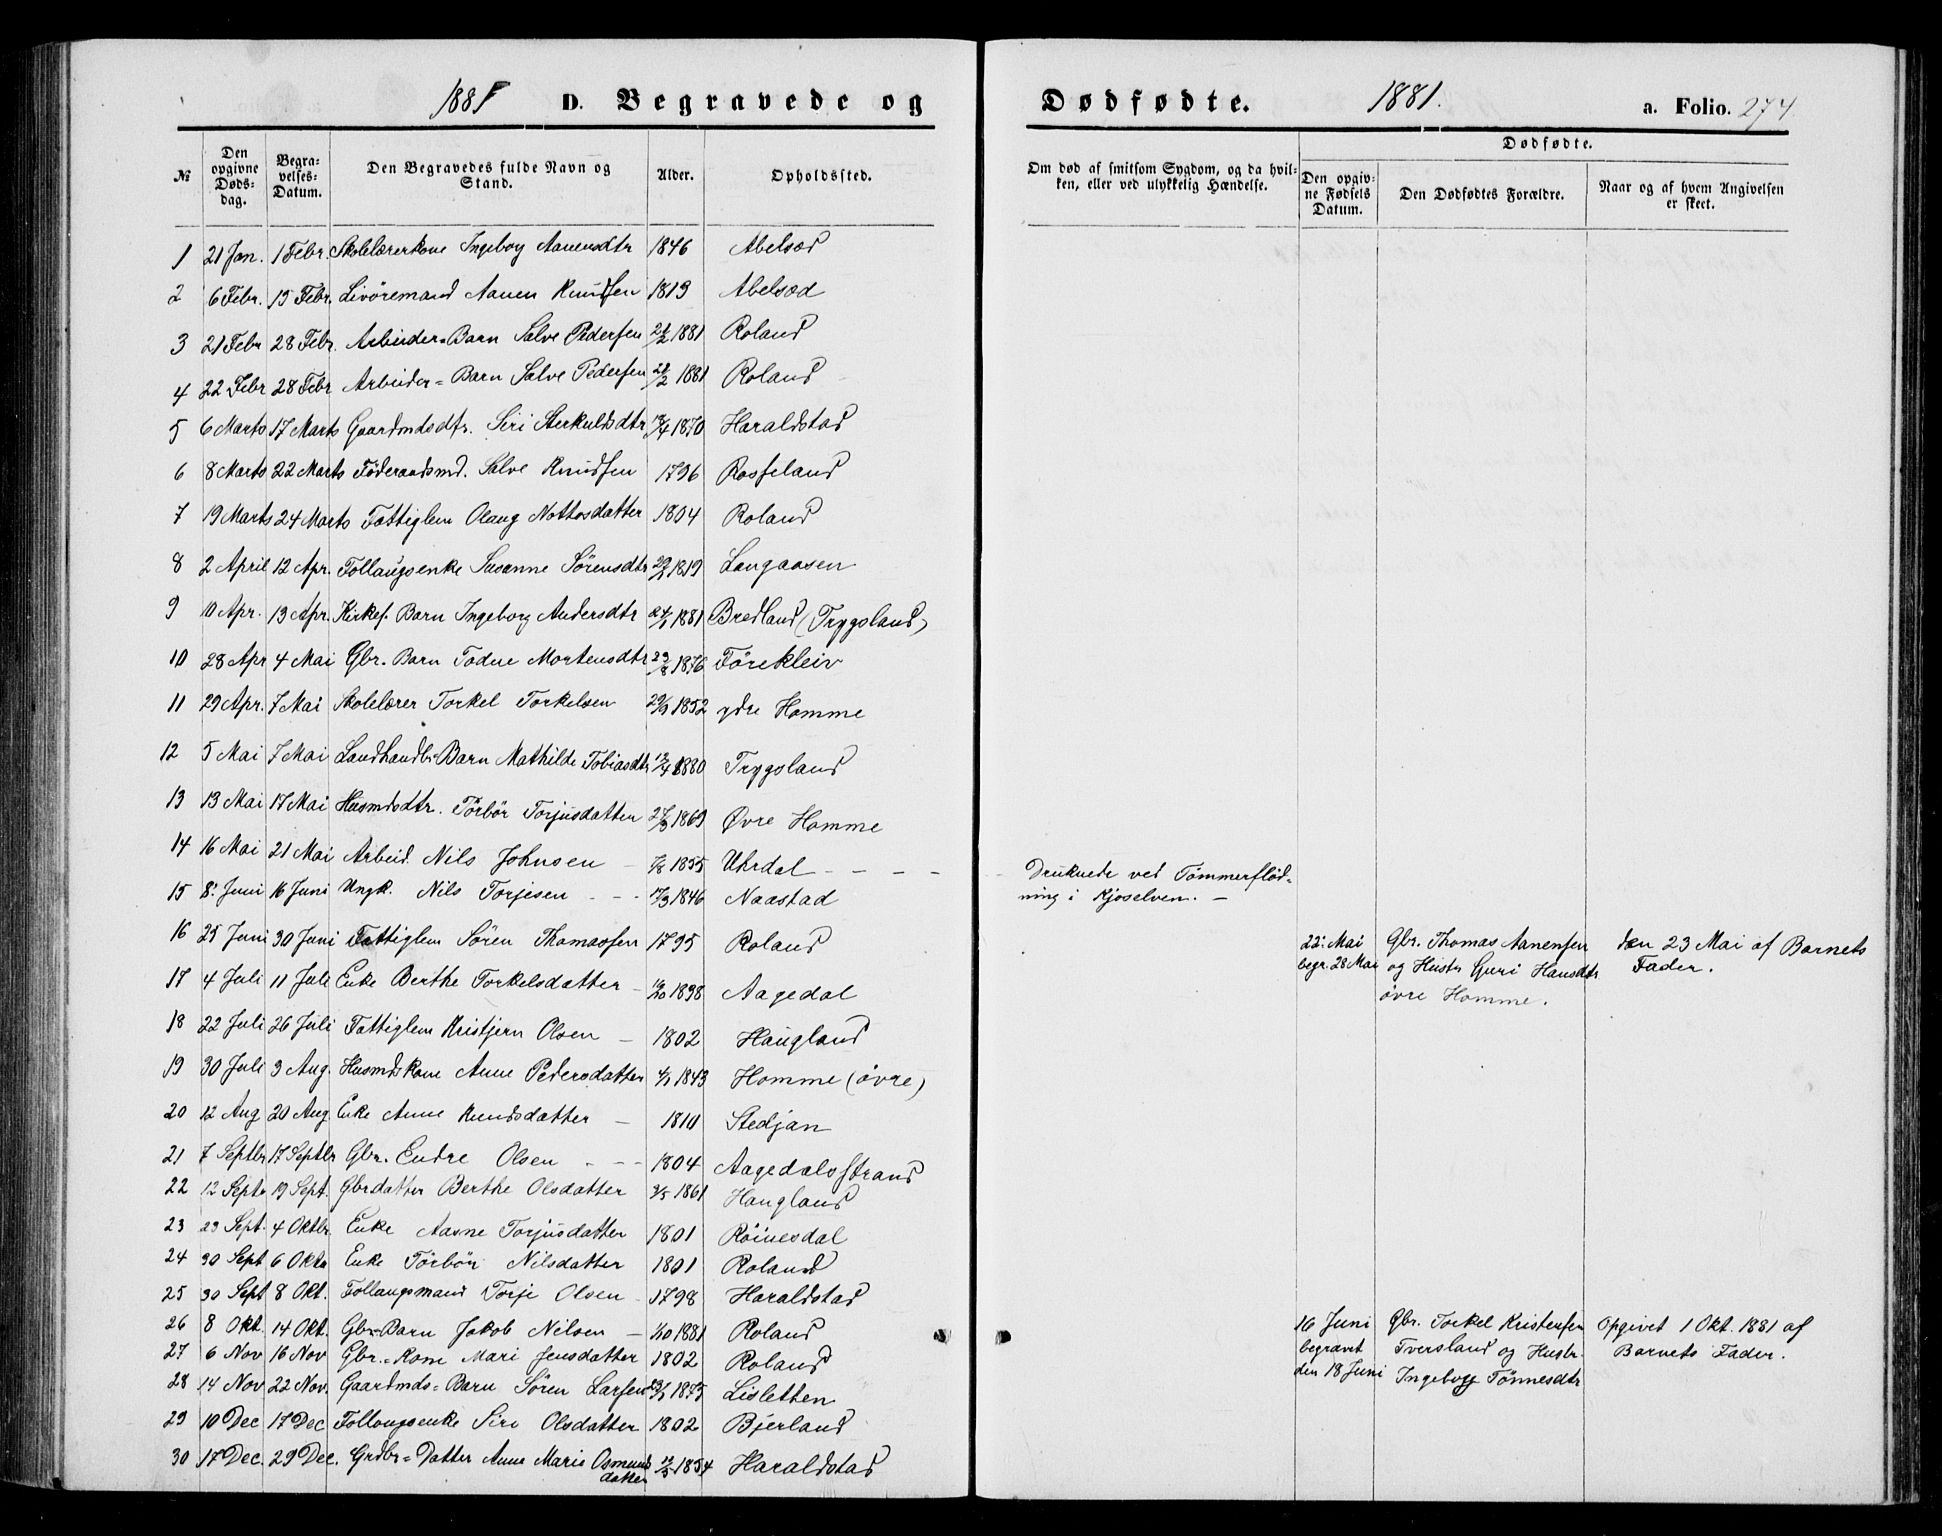 1881 D. Begravede og
№
Den opgivne Døds-dag.
Begra-velses-Datum.
Den Begravedes fulde Navn og Stand.
Alder.
Opholdssted.
1 21 Jan. 1 Febr. Skolelærerkone Ingeborg Aanensdtr 1846 Abelsæd
2 6 Febr. 15 Febr. Livöremand Aanen Knudsen 1813 Abelsæd
3 21 Febr 28 Febr. Arbeider-Barn Salve Pedersen 21/2 1881 Roland
4 22 Febr 28 Febr Arbeider-Barn Salve Pedersen 21/2 1881 Roland
5 6 Marts 17 Marts Gaardmdsdtr. Siri Sterkuldsdtr 1870 Haraldstad
6 8 Marts 22 Marts Föderaadsmd. Salve Knudsen 1796 Rosseland
7 19 Marts 24 Marts Fattiglem Olaug Nottosdatter 1804 Roland
8 2 April 12 Apr. Follaugsenke Susanne Sörensdtr 1819 Langaasen
9 10 Apr. 13 Apr. Kirkes. Barn Ingeborg Andersdtr 24/1 1881 Bredland (Trygsland)
10 28 Apr 4 Mai Gbr. Barn Todne Mortensdtr 29/8 1876 Förekleiv
11 29 Apr. 7 Mai Skolelærer Torkel Torkelsen 1852 ydre Homme
12 5 Mai 7 Mai Landhandl-Barn Mathilde Tobiasdtr 1880 Trygsland
13 13 Mai 17 Mai Husmdsdtr. Törbör Torjusdatter 27/3 1869 Øvre Homme
14 16 Mai 21 Mai Arbeid. Nils Johnsen 1855 Uhrdal
15 8. Juni 16 Juni Ungk. Nils Torjesen 17/3 1846 Naastad
16 25 Juni 30 Juni Fattiglem Sören Thomassen 1795 Roland
17 4 Juli 11 Juli Enke Berthe Torkelsdatter 1898 Aagedal
18 22 Juli 26 Juli Fattiglem Kristjern Olsen 1802 Haugland
19 30 Juli 3 Aug. Husmdskone Anne Pedersdatter 4/1 1843 Homme (övre)
20 12 Aug 20 Aug. Enke Anne Knudsdatter 1810 Stedjan
21 7 Septbr 17 Septbr Gbr. Endre Olsen 1804 Aagedalsstrand
22 12 Septr 19 Sept. Gbrdatter Berthe Olsdatter 3/5 1861 Haugland
23 23 Sept. 4 Oktbr. Enke Aasne Torjusdatter 1801 Röinesdal
24 30 Sept 6 Oktr Enke Törbör Nilsdatter 1801 Roland
25 30 Sept 8 Okt. Follaugsmand Torje Olsen 1798 Haraldstad
26 8 Okt. 14 Okt. Gbr-Barn Jakob Nilsen 1/10 1881 Roland
27 6 Nov 16 Nov Gbr.-Kone Mari Jensdatter 1802 Roland
28 14 Nov 22 Nov. Gaardmds-Barn Sören Larsen 1875 Lisletten
29 10 Dec 17 Dec Follaugsenke Siri Olsdatter 1802 Bjerland
30 17 Dec. 29 Dec. Grdbr-Datter Anne Marie Osmunds
datter 1854 Haraldstad
Dødfødte. 1881. a. Folio. 274.
Om død af smitsom Sygdom, og da hvil-ken, eller ved ulykkelig Hændelse.
Dødfødte.
Den opgiv-ne Fødsels Datum.
Den Dødfødtes Forældre.
Naar og af hvem Angivelsen er skeet.
Druknede ved Tömmerflöd-
ning i Kjoselven. -
22. Mai Gbr. Thomas Aanensen den 23 Mai af Barnets
begr. 28 Mai og Hustr Guri Hansdtr Fader.
övre Homme.
16 Juni Gbr. Torkel Kristensen Opgivet 1 Okt. 1881 af
begravet Tversland og Hustr. Barnets Fader.
den 18 Juni Ingeborg Tönnesdtr